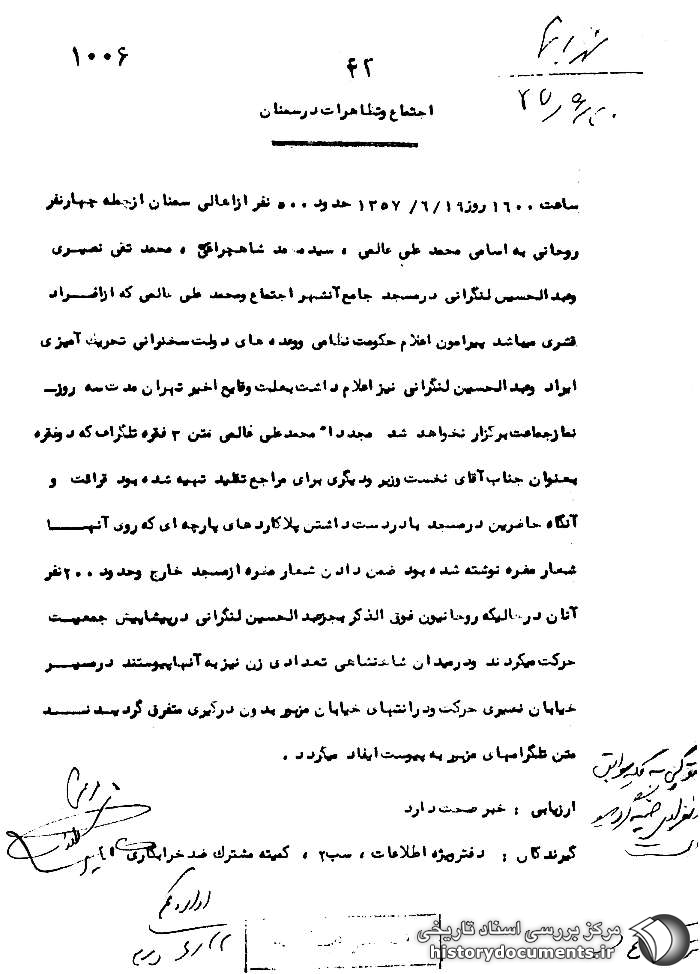 ۱۰۰۶
۴۲
اجتماع وتظاهرات درسمنان
ساعت ۱۶۰۰ روز ۱۹/ ۶/ ۱۳۵۷ حدود ۵۰۰ نفر ازاهالی سمنان ازجمله چهارنفر
روحانی به اسامی محمد علی عالمی ، سید محمد شاهچراغی ، محمد تقی نصیری
وعبدالحسین لنگرانی درمسجد جامع آنشهر اجتماع ومحمد علی عالمی که ازافراد
قشری میباشد پیرامون اعلام حکومت نظامی ووعده های دولت سخنرانی تحریک آمیزی
ایراد وعبدالحسین لنگرانی نیز اعلام داشت بعلت وقایع اخیر تهران مدت سه روز
نمازجماعت برگزار نخواهد شد مجددا" محمدعلی عالمی متن ۳ فقره تلگراف که دوفقره
بعنوان جناب آقای نخست وزیر ودیگری برای مراجع تقلید تهیه شده بود قرائت و
آنگاه حاضرین درمسجد بادردست داشتن پلاکاردهای پارچه ای که روی آنها
شعار مضره نوشته شده بود ضمن دادن شعار مضره ازمسجد خارج وحدود ۲۰۰نفر
آنان درحالیکه روحانیون فوق الذکر بجزعبدالحسین لنگرانی درپیشاپیش جمعیت
حرکت میکردند ودرمیدان شاهنشاهی تعدادی زن نیز به آنهاپیوستند درمسیر
خیابان نصیری حرکت ودرانتهای خیابان مزبور بدون درگیری متفرق گردیدند
متن تلگرامهای مزبور به پیوست ایفاد میگردد .
ارزیابی : خبر صحت دارد
گیرندگان : دفترویژه اطلاعات ، سب۲ ، کمیته مشترک ضدخرابکاری
مرکز بررسی اسناد تاریخی
historydocuments.ir